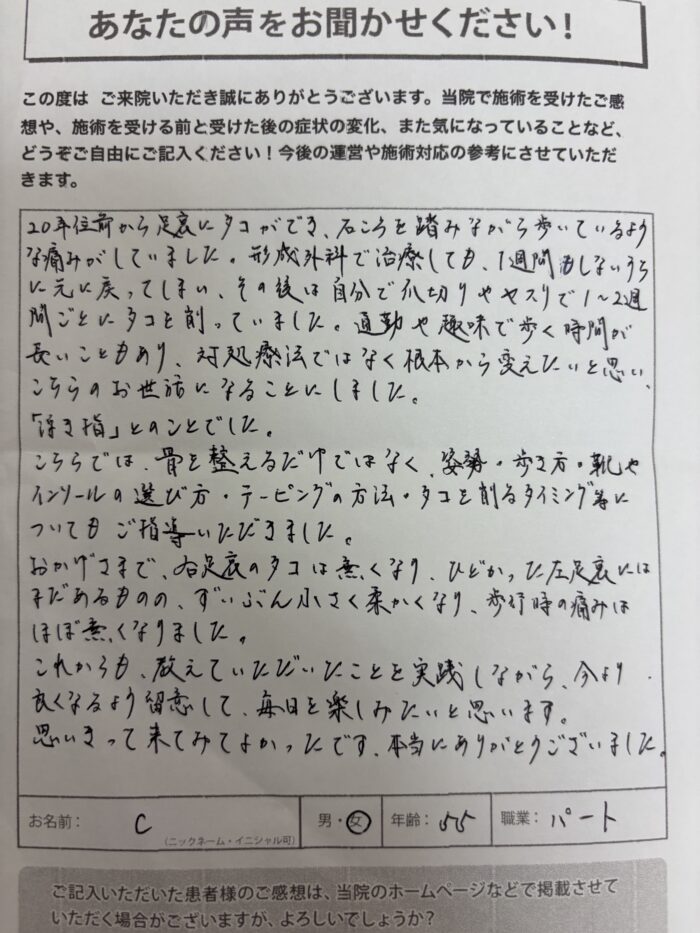 あなたの声をお聞かせください！
この度は ご来院いただき誠にありがとうございます。当院で施術を受けたご感
想や、施術を受ける前と受けた後の症状の変化、また気になっていることなど、
どうぞご自由にご記入ください！今後の運営や施術対応の参考にさせていただ
きます。
20年位前から足裏にタコができ、石ころを踏みながら歩いているよう
な痛みがしていました。形成外科で治療しても、1週間もしないうち
に元に戻ってしまい、その後は自分で爪切りやヤスリで1～2週
間ごとにタコを削っていました。通勤や趣味で歩く時間が
長いこともあり、対処療法ではなく根本から変えたいと思い、
こちらのお世話になることにしました。
「浮き指」とのことでした。
こちらでは、骨を整えるだけではなく、姿勢・歩き方・靴や
インソールの選び方・テーピングの方法・タコを削るタイミング等に
ついてもご指導いただきました。
おかげさまで、右足裏のタコは無くなり、ひどかった左足裏には
まだあるものの、ずいぶん小さく柔かくなり、歩行時の痛みは
ほぼ無くなりました。
これからも、教えていただいたことを実践しながら、今より
良くなるよう留意して、毎日を楽しみたいと思います。
思いきって来てみてよかったです、本当にありがとうございました。
お名前： C （ニックネーム・イニシャル可） 男・女 年齢：55 職業：パート
ご記入いただいた患者様のご感想は、当院のホームページなどで掲載させて
いただく場合がございますが、よろしいでしょうか？